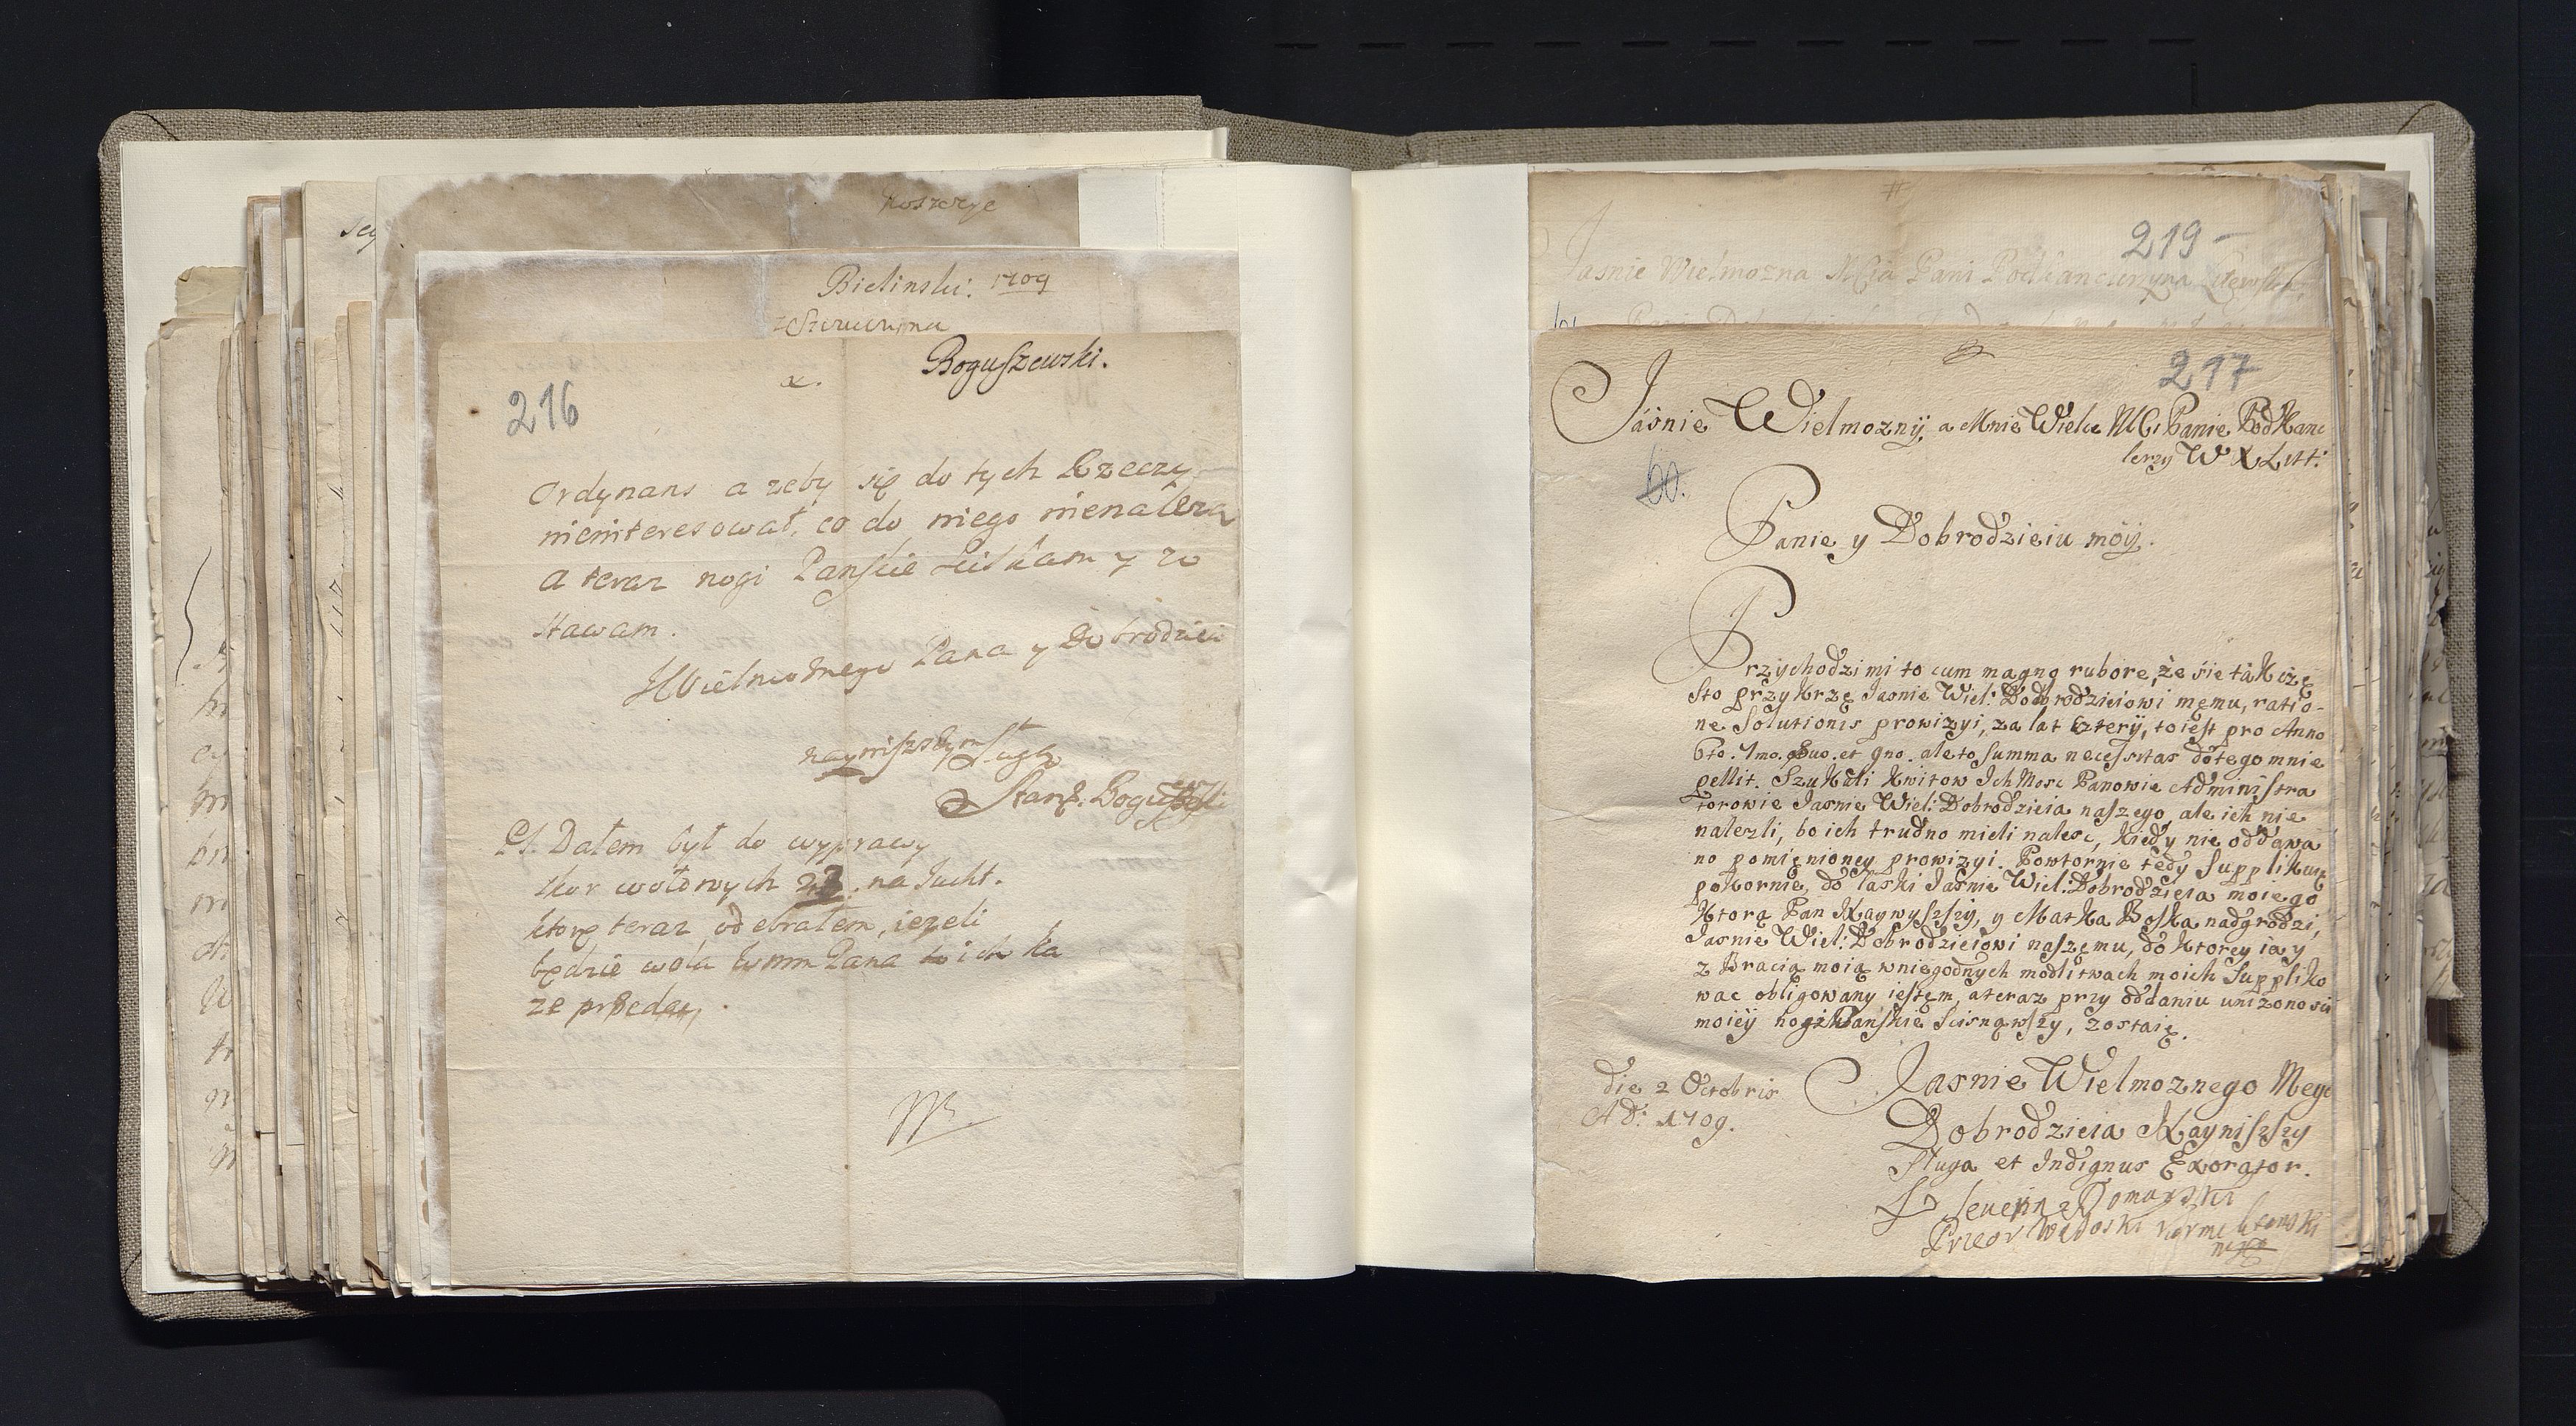 Koszerye
Bielinski. 1709
Boguszewski.
x.
216
Ordynans a zeby się do tych Rzeczy
nieinteresował, co do niego nienależa
a teraz nogi Panskie sciskam y zo
stawam.
JWielmożnego Pana y Dobrodziei
nayniszszym Sługą
Stanis. Boguszewski
PS. Dałem był do wyprawy
skor wołowych 22. na Jucht.
ktore teraz odebrałem, iezeli
będzie wola Wmm Pana to ich ka
ze przedac.
219
Jasnie Wielmozna Mcia Pani Podkanclerzyna Litewska,
217
Jásnie Wielmoznÿ, a Mnie Wielce MCi Panie PodKanc
lerzy W X Litt:
60.
Panie y Dobrodzieiu móÿ.
Przychodzi mi to cum magno rubore, że się ták czę
sto przykrzę Jasnie Wiel: Dobrodzieiowi memu, ratio-
ne Solutionis prowizyi, za lat czterÿ, to iest pro Anno
6to. 7mo. 8uo. et 9no. ale to summa necessitas do tego mnie
pellit. Szukali Kwitow Ich Mosc Panowie Administra
torowie Jasnie Wiel: Dobrodzieia naszego, ale ich nie
nalezli, bo ich trudno mieli nalesc, kiedy nie oddawa
no pomienioney prowizyi. Powtornie tedy Supplikuię
pokornie, do łaski Jasnie Wiel: Dobrodzieia moiego
Ktorą Pan Naywyszszÿ, y Matka Boska nadgrodzi,
Jasnie Wiel: Dobrodzieiowi naszemu, do Ktorey ia y
z Bracią moią w niegodnych modlitwach moich Suppliko
wac obligowany iestem, a teraz przy oddaniu unizonosci
moiëÿ nogi Panskie scisnąwszy, zostaię.
die 2 Octobris
A D: 1709.
Jasnie Wielmoznego Mego
Dobrodzieia Nayniszszy
Sługa et Indignus Exorator.
F Seuerin Domanski
Przeor Wąsoski Karmelitanski
mpp